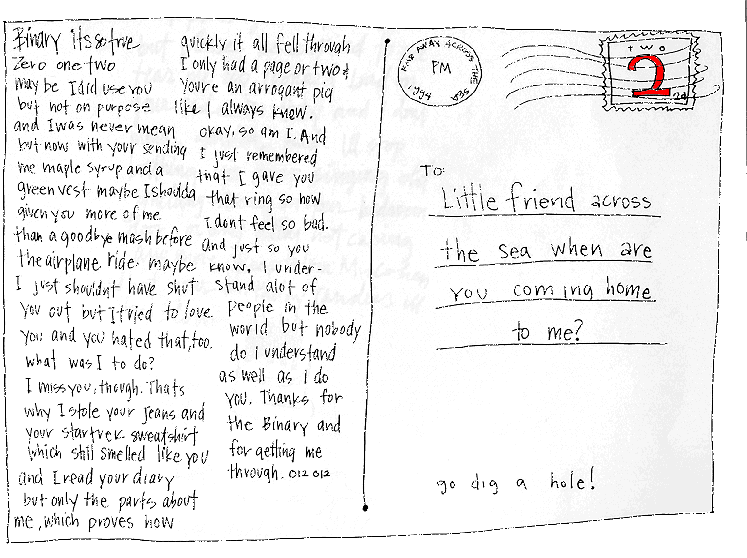 Binary its so true
Zero one two
maybe I did use you
but not on purpose
and I was never mean
but now with your sending
me maple syrup and a
green vest maybe I shoulda
given you more of me
than a goodbye mash before
the airplane ride. maybe
I just shouldnt have shut
you out but I tried to love
you and you hated that, too.
what was I to do?
I miss you, though. Thats
why I stole your jeans and
your startrek sweatshirt
which still smelled like you
and I read your diary
but only the parts about
me, which proves how
quickly it all fell through
I only had a page or two &
youre an arrogant pig
like I always know.
okay, so am I. And
I just remembered
that I gave you
that ring so now
I dont feel so bad.
And just so you
know, I under-
stand alot of
people in the
world but nobody
do I understand
as well as I do
you. Thanks for
the Binary and
for getting me
through. 012 012
FAR AWAY ACROSS THE SEA
PM
1994
two
2
2¢
TO:
Little friend across
the sea when are
you coming home
to me?
go dig a hole!